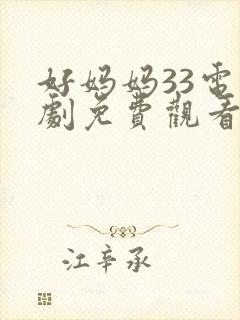 好妈妈33電
劇免費觀看
江辛承